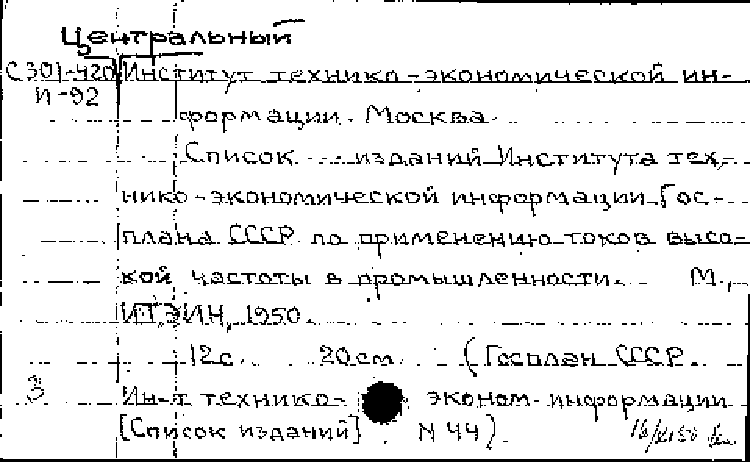 Центральный
С301-420 Институт технико-экономической ин-
И-92
формации. Москва.
Список ... изданий Института тех-
нико-экономической информации Гос-
плана СССР по применению токов высо-
кой частоты в промышленности. М.,
ИТЭИН, 1950.
12 с. 20 см. (Госплан СССР.
3 Ин-т технико- эконом. информации
[Список изданий] N 44)